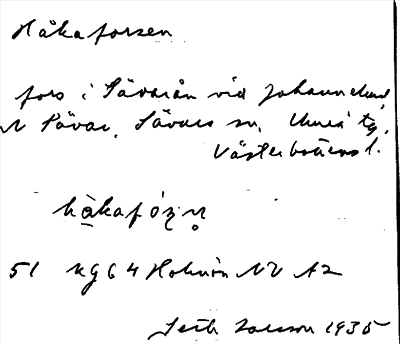 Håkaforsen
fors i Sävarån vid Johanneslund
N Sävar, Sävars sn, Umeå tg,
Västerbottens l.
håkafóʒn̥
51 KG 64 Holmön NV A2
Seth Larsson 1935